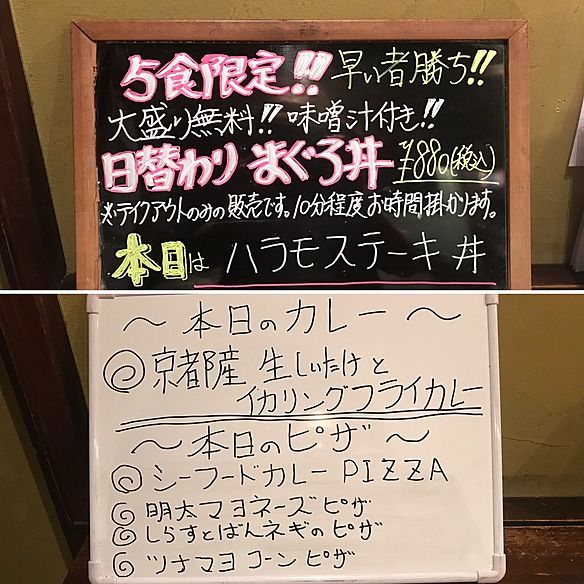 5食限定!! 早い者勝ち!!
大盛り無料!! 味噌汁付き!!
日替わり まぐろ丼 ¥880(税込)
※テイクアウトのみの販売です。10分程度お時間掛かります。
本日は ハラモステーキ丼
〜本日のカレー〜
◎京都産 生しいたけと
イカリングフライカレー
〜本日のピザ〜
◎シーフードカレーPIZZA
◎明太マヨネーズピザ
◎しらすとばんネギのピザ
◎ツナマヨコーンピザ